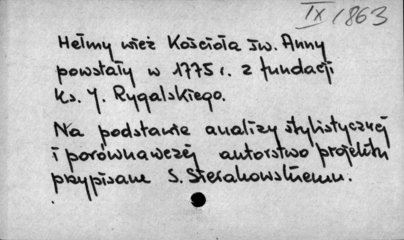 IX/863
Hełmy wież Kościoła św. Anny
powstały w 1775 r. z fundacji
ks. J. Rygalskiego.
Na podstawie analizy stylistycznej
i porównawczej autorstwo projektu
przypisane S. Sierakowskiemu.